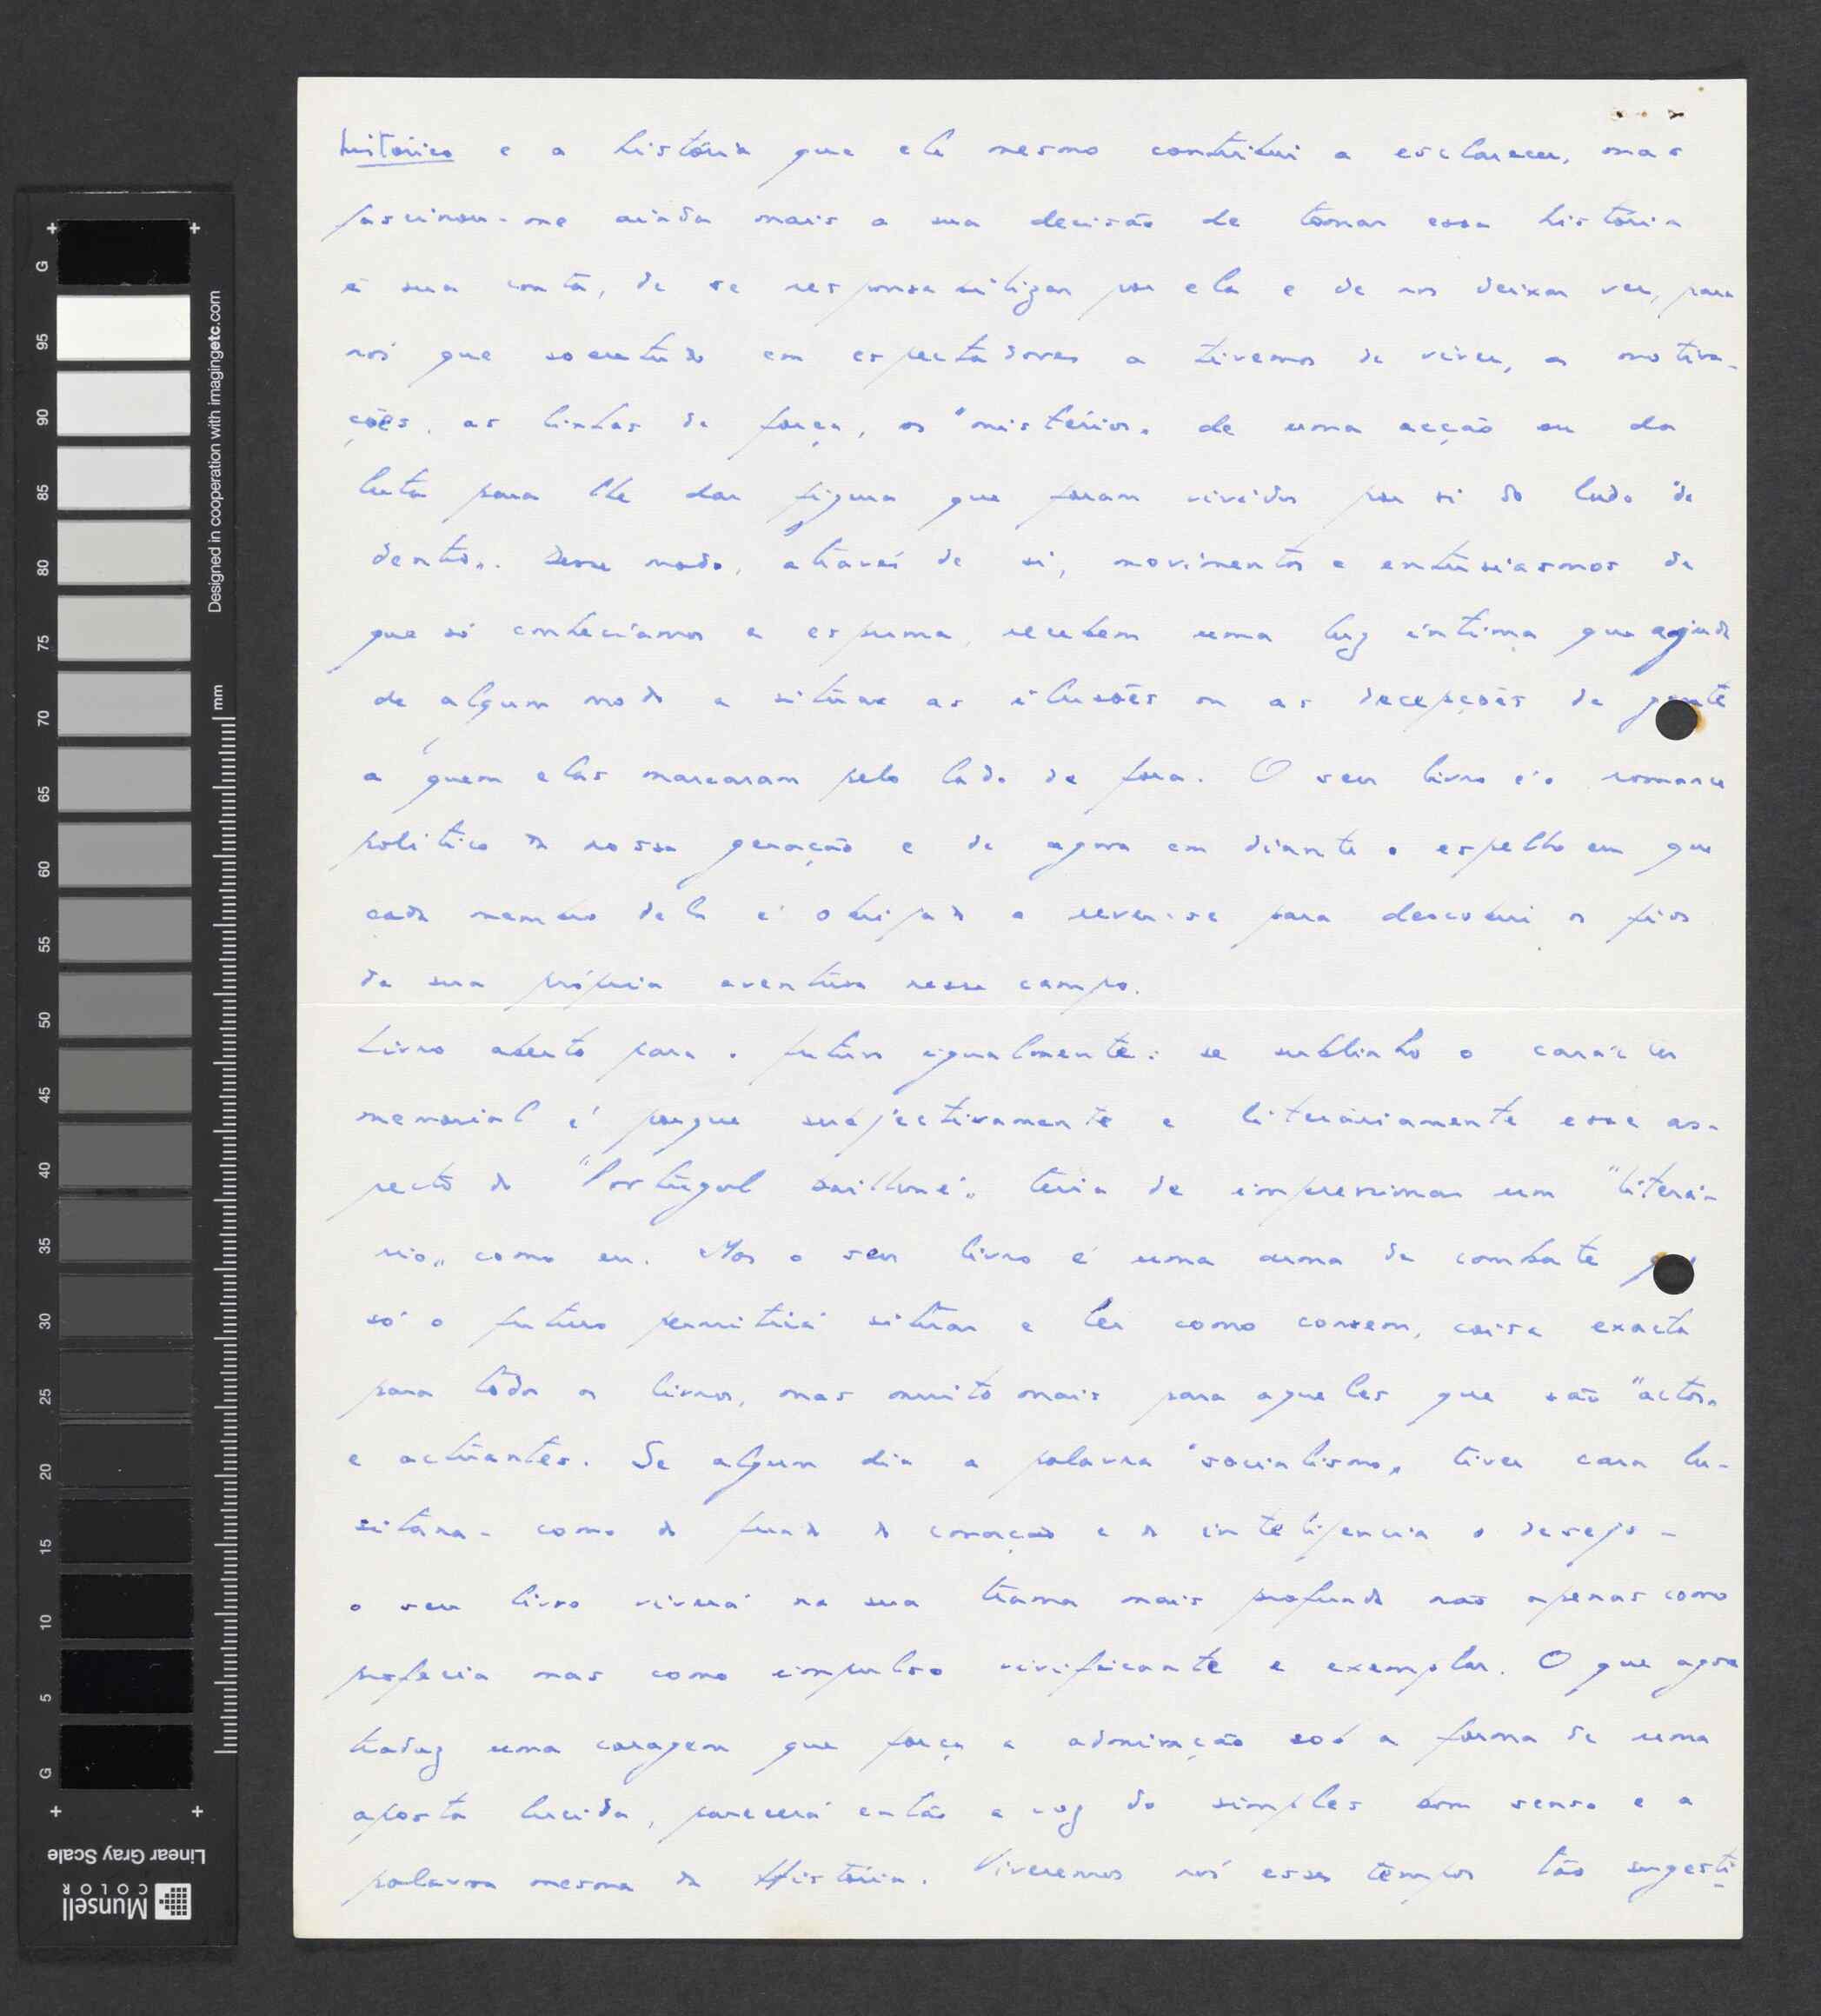 histórico e a história que ele mesmo contribui a esclarecer, mas
fascinou-me ainda mais a sua decisão de tomar essa história
à sua conta, de se responsabilizar por ela e de nos deixar ver, para
nós que sobretudo em espectadores a tivemos de viver, as motiva-
ções, as linhas de força, os "mistérios" de uma acção ou da
luta para lhe dar figura que foram vividos por si do lado de
dentro". Desse modo, através de si, movimentos e entusiasmos de
que só conhecíamos a espuma, recebem uma luz íntima que ajuda
de algum modo a situar as ilusões ou as decepções de gente
a quem elas marcaram pelo lado de fora. O seu livro é o romance
político da nossa geração e de agora em diante o espelho em que
cada membro dela é obrigado a rever-se para descobrir os fios
da sua própria aventura nesse campo.
Livro aberto para o futuro igualmente: se sublinho o carácter
memorial é porque subjectivamente e literáriamente esse as-
pecto do "Portugal baillonné" teria de impressionar um "literá-
rio" como eu. Mas o seu livro é uma arma de combate que
só o futuro permitirá situar e ler como convem, coisa exacta
para todos os livros, mas muito mais para aqueles que são "actos"
e actuantes. Se algum dia a palavra "socialismo" tiver cara lu-
sitana - como do fundo do coração e da inteligencia o desejo -
o seu livro viverá na sua trama mais profunda não apenas como
profecia mas como impulso vivificante e exemplar. O que agora
traduz uma coragem que força a admiração sob a forma de uma
aposta lucida, parecerá então a voz do simples bom senso e a
palavra mesma da História. Viveremos nós esses tempos tão sugesti-
Designed in cooperation with imagingetc.com
mm
G
95
90
85
80
75
70
65
60
55
50
45
40
35
30
25
20
15
10
5
G
Linear Gray Scale
Munsell
COLOR